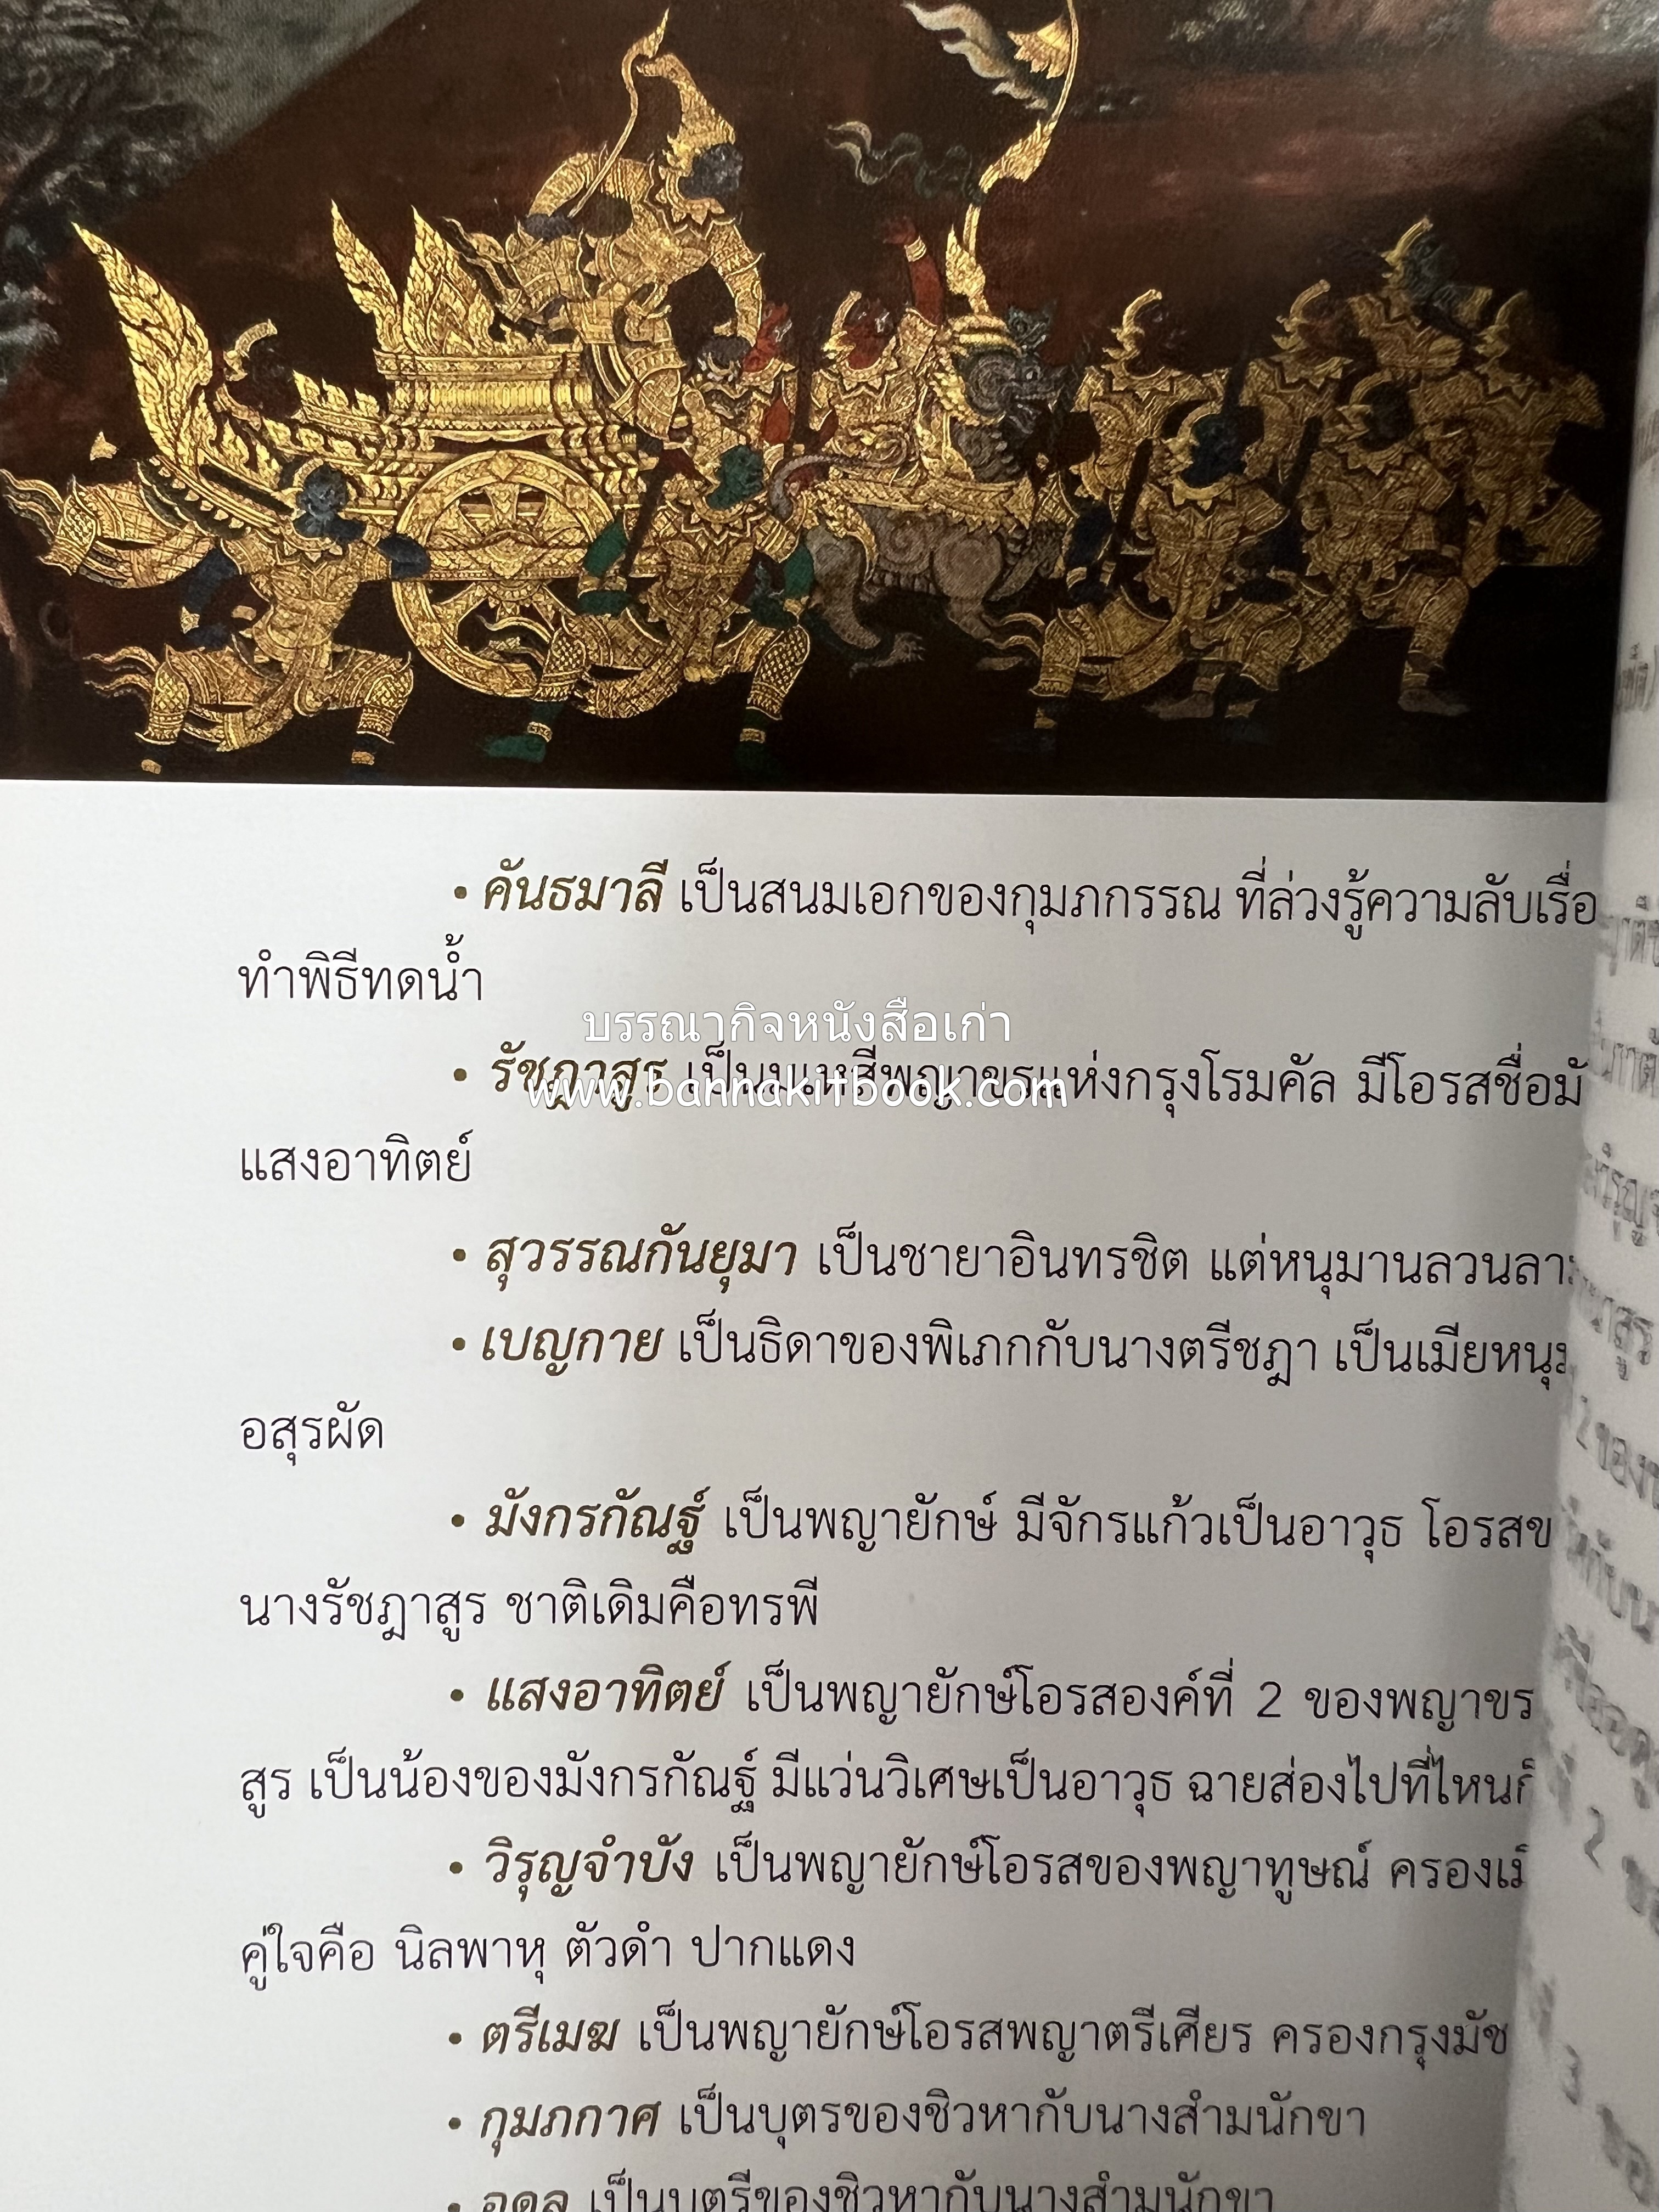 • คันธมาลี เป็นสนมเอกของกุมภกรรณ ที่ล่วงรู้ความลับเรื่อ
ทำพิธีทดน้ำ
บรรณากิจหนังสือเก่า
• รัชฎาสูร เป็นมเหสีพญาขรแห่งกรุงโรมคัล มีโอรสชื่อมั
www.bannakitbook.com
แสงอาทิตย์
• สุวรรณกันยุมา เป็นชายาอินทรชิต แต่หนุมานลวนลา
• เบญกาย เป็นธิดาของพิเภกกับนางตรีชฎา เป็นเมียหนุ
อสุรผัด
• มังกรกัณฐ์ เป็นพญายักษ์ มีจักรแก้วเป็นอาวุธ โอรสข
นางรัชฎาสูร ชาติเดิมคือทรพี
• แสงอาทิตย์ เป็นพญายักษ์โอรสองค์ที่ 2 ของพญาขร
สูร เป็นน้องของมังกรกัณฐ์ มีแว่นวิเศษเป็นอาวุธ ฉายส่องไปที่ไหนก็
• วิรุญจำบัง เป็นพญายักษ์โอรสของพญาทูษณ์ ครองเ
คู่ใจคือ นิลพาหุ ตัวดำ ปากแดง
• ตรีเมฆ เป็นพญายักษ์โอรสพญาตรีเศียร ครองกรุงมัช
• กุมภกาศ เป็นบุตรของชิวหากับนางสำมนักขา
• อดูล เป็นบุตรีของชิวหากับนางสำมนักขา